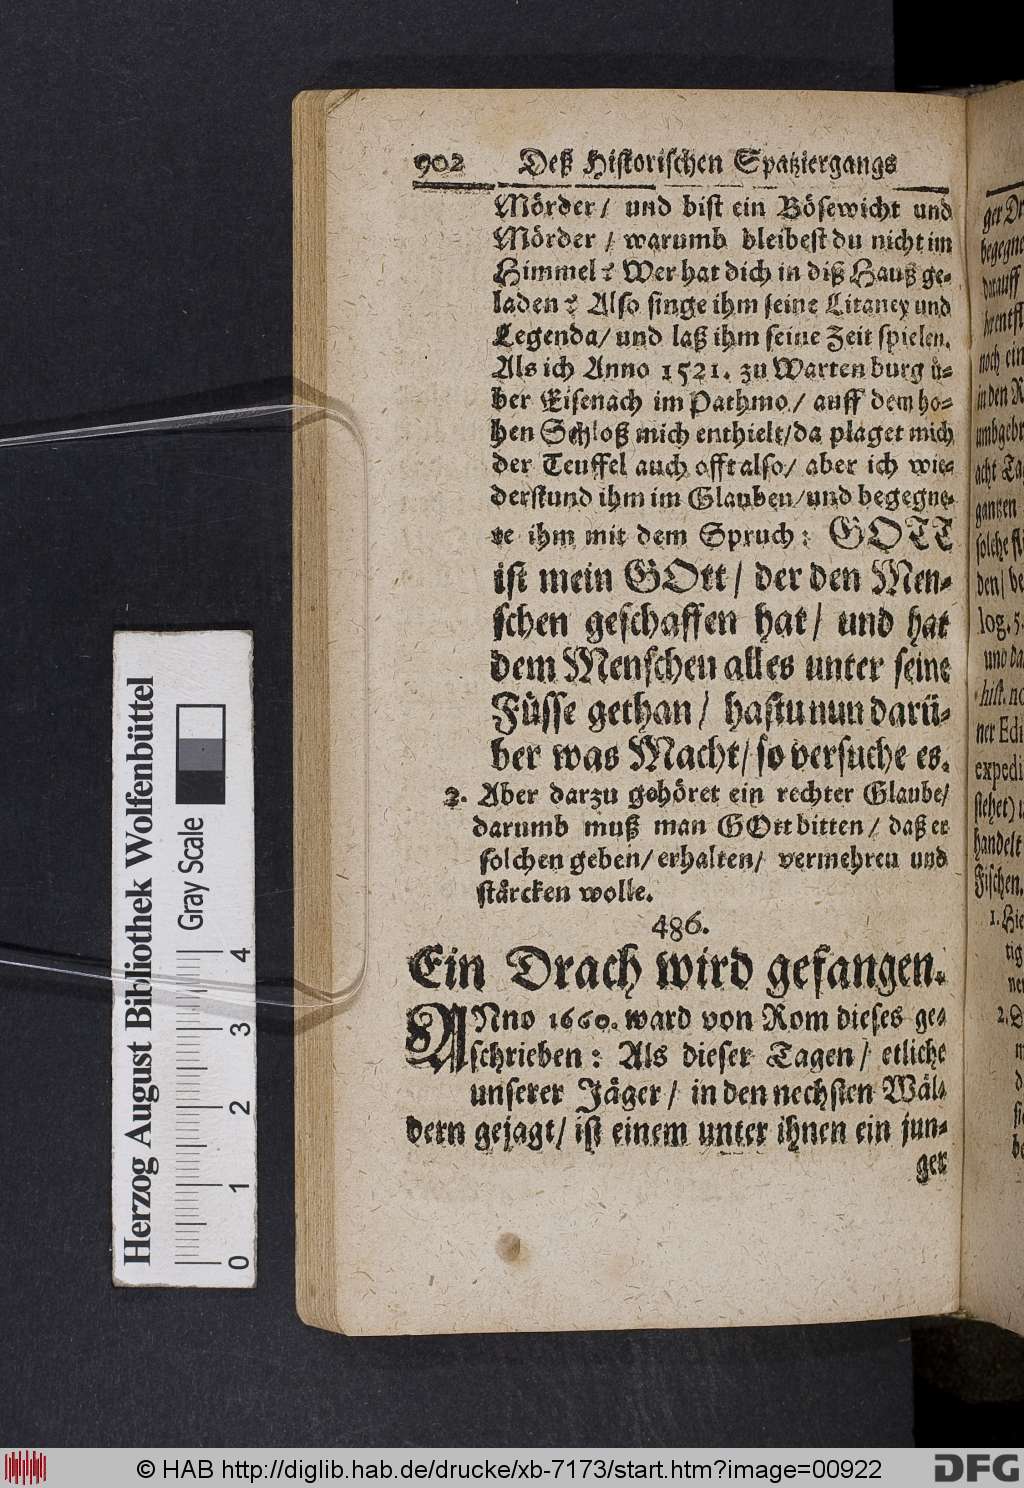 902 Deß Historischen Spatziergangs
Mörder/ und bist ein Bösewicht und
Mörder / warumb bleibest du nicht im
Himmel? Wer hat dich in diß Hauß ge-
laden? Also singe ihm seine Litaney und
Legenda/ und laß ihm seine Zeit spielen.
Als ich Anno 1521. zu Wartenburg ü-
ber Eisenach im Pathmo/ auff dem ho-
hen Schloß mich enthielt/da plaget mich
der Teuffel auch offt also/ aber ich wie-
derstund ihm im Glauben/und begegne-
te ihm mit dem Spruch: GOTT
ist mein GOtt/ der den Men-
schen geschaffen hat/ und hat
dem Menschen alles unter seine
Füsse gethan/ hastu nun darü-
ber was Macht/ so versuche es.
2. Aber darzu gehöret ein rechter Glaube/
darumb muß man GOtt bitten/ daß er
solchen geben/ erhalten/ vermehren und
stärcken wolle.
486.
Ein Drach wird gefangen.
ANno 1660. ward von Rom dieses ge-
schrieben: Als dieser Tagen/ etliche
unserer Jäger/ in den nechsten Wäl-
dern gejagt/ ist einem unter ihnen ein jun-
ger
ger Dr
begegne
darauff
noch ein
in den R
umbgebr
acht Ta
gantzen
solche fl
den/ de
log. 5.
und da
hist. no
ner Edi
expedi
stehet) u
handelt
Fischen.
1. Hie
tig
2. D
Herzog August Bibliothek Wolfenbüttel
Gray Scale
0 1 2 3 4
© HAB http://diglib.hab.de/drucke/xb-7173/start.htm?image=00922
DFG